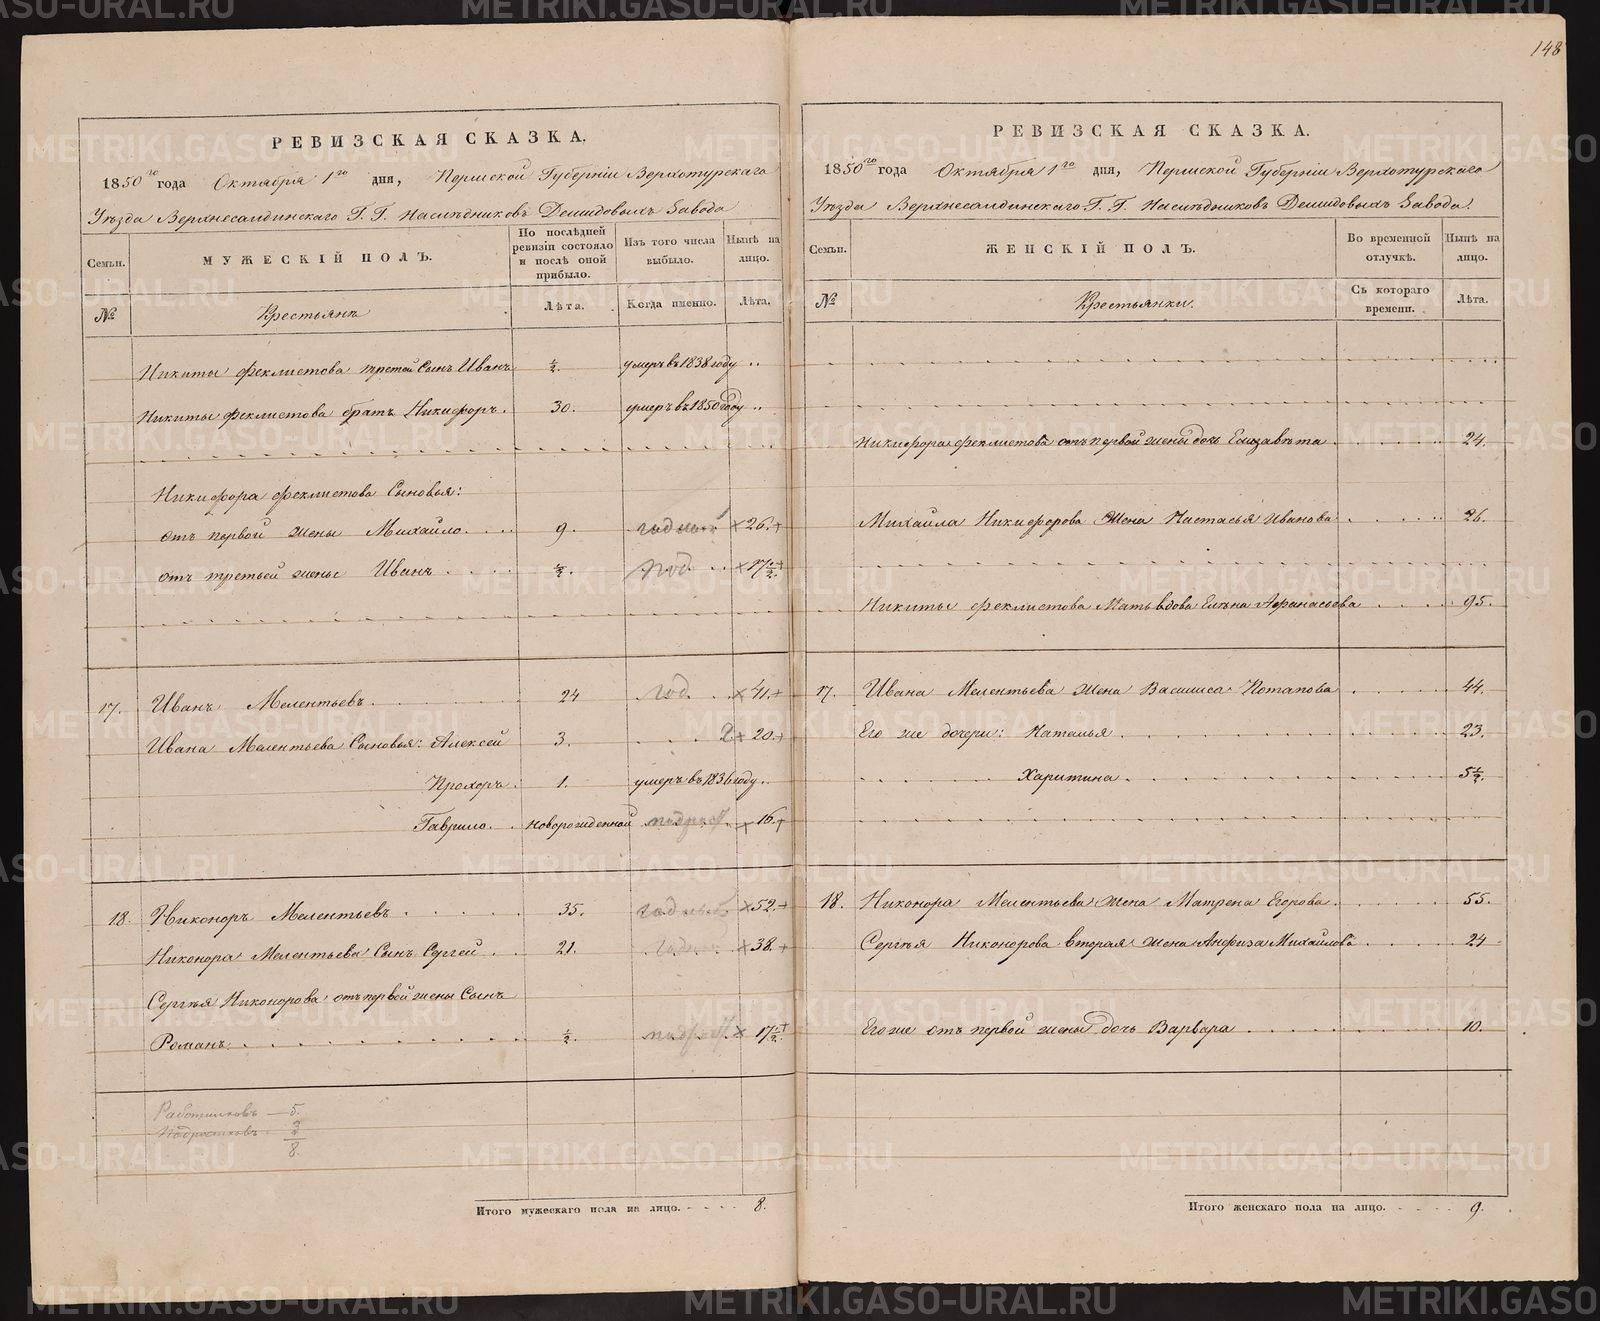 148
РЕВИЗСКАЯ СКАЗКА.
1850го года Октября 1го дня, Пермской Губерніи Верхотурскаго
Уѣзда Верхнесалдинскаго Г. Г. Наслѣдниковъ Демидовыхъ Завода
Семьи.
МУЖЕСКІЙ ПОЛЪ.
По послѣдней ревизіи состояло и послѣ оной прибыло.
Изъ того числа выбыло.
Нынѣ на лицо.
№
Крестьянъ
Лѣта.
Когда именно.
Лѣта.
Никиты Феклистова третей Сынъ Иванъ ½. умеръ въ 1838 году ..
Никиты Феклистова братъ Никифоръ. 30. умеръ въ 1850 году ..
Никифора Феклистова Сыновья:
отъ первой жены Михайло. 9. годный ×26.+
отъ третьей жены Иванъ ½. год. ×17½.+
17. Иванъ Мелентьевъ. 24 год. ×41.+
Ивана Мелентьева Сыновья: Алексей 3. 2+ 20.+
Прохоръ. 1. умеръ въ 1836 году ..
Гаврило. новорожденной +16.+
18. Никоноръ Мелентьевъ 35. годный ×52.+
Никонора Мелентьева Сынъ Сергей 21. годный ×38.+
Сергѣя Никонорова отъ первой жены Сынъ
Романъ. ½. × 17½.+
Работниковъ — 5.
Подростковъ - 3
8.
Итого мужескаго пола на лицо. 8.
РЕВИЗСКАЯ СКАЗКА.
1850го года Октября 1го дня, Пермской Губерніи Верхотурскаго
Уѣзда Верхнесалдинскаго Г. Г. Наслѣдниковъ Демидовыхъ Завода.
Семьи.
ЖЕНСКІЙ ПОЛЪ.
Во временной отлучкѣ.
Нынѣ на лицо.
№
Крестьянки.
Съ котораго времени.
Лѣта.
Никифора Феклистова отъ первой жены дочь Елизавѣта 24.
Михайла Никифорова жена Настасья Иванова 26.
Никиты Феклистова Мать вдова Елѣна Афанасьева 95.
17. Ивана Мелентьева жена Василиса Потапова 44.
Его же дочери: Наталья 23.
Харитина 5½.
18. Никонора Мелентьева жена Матрена Егорова. 55.
Сергѣя Никонорова вторая жена Анфиза Михайлова 24
Его же отъ первой жены дочь Варвара 10.
Итого женскаго пола на лицо. 9.
METRIKI.GASO-URAL.RU